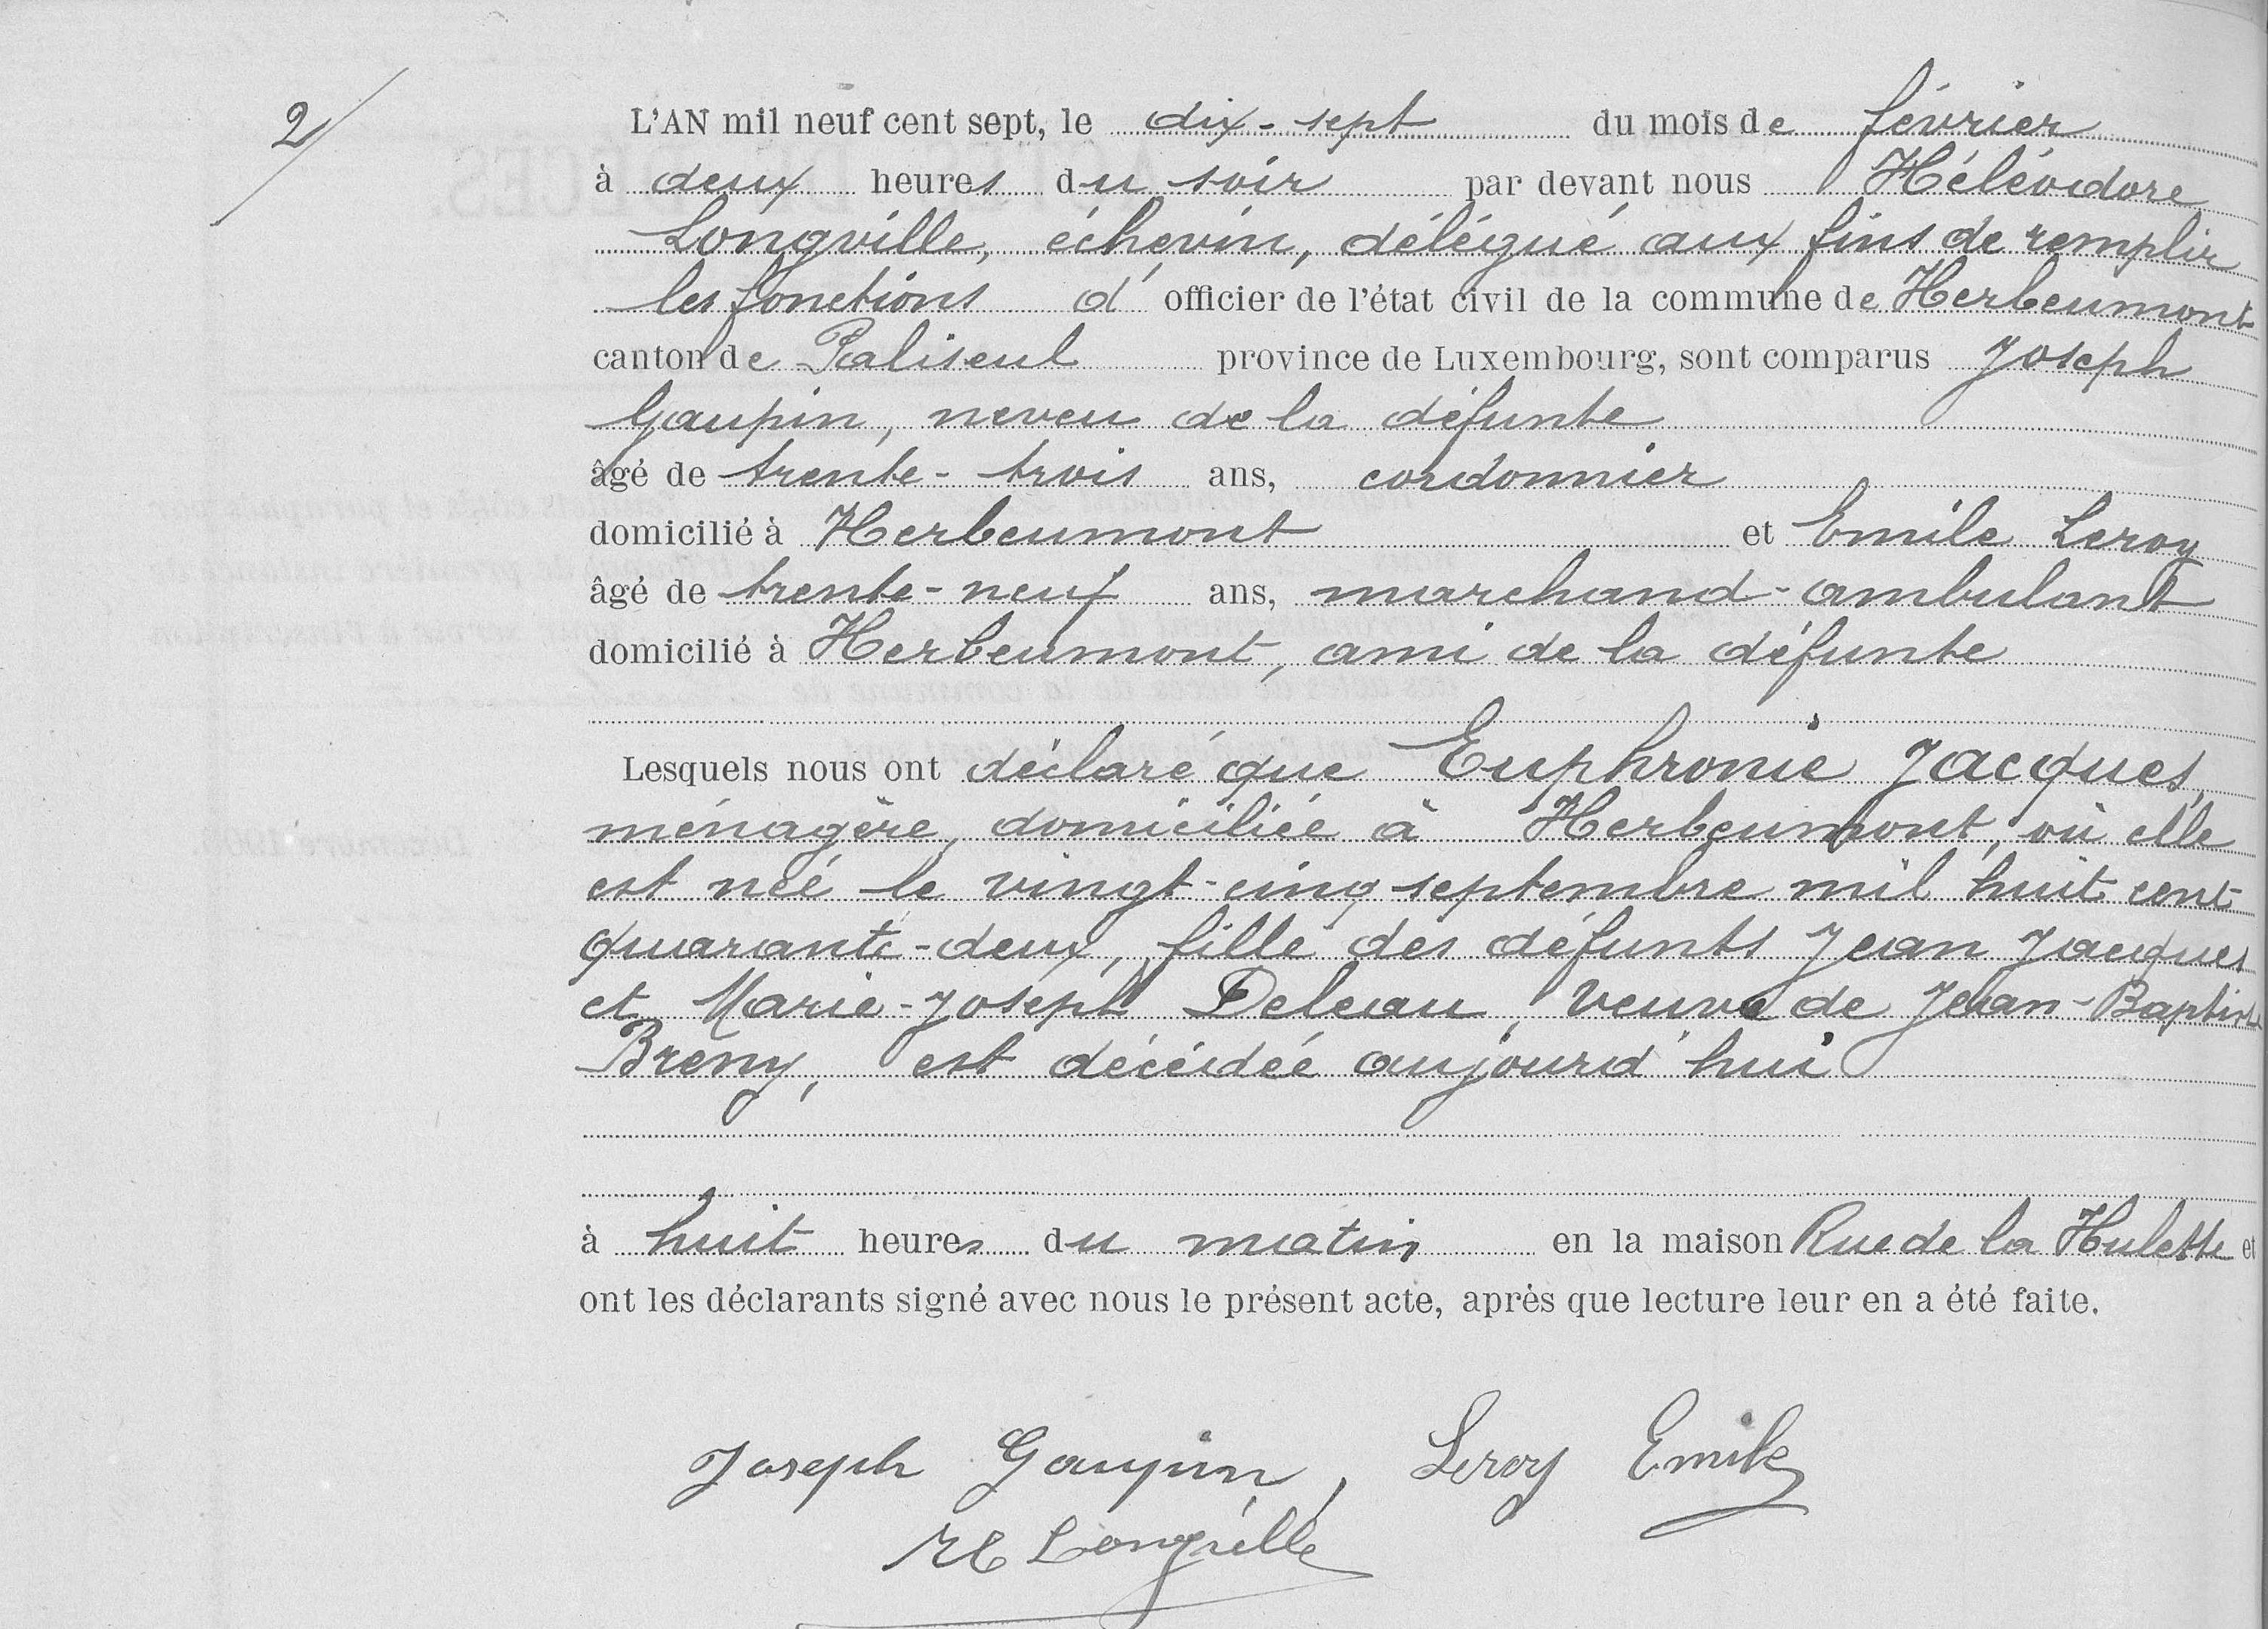 2/
L'AN mil neuf cent sept, le dix-sept du mois de février
à deux heures du soir par devant nous Héléodore
Longville, échevin, délégué aux fins de remplir
les fonctions d'officier de l'état civil de la commune de Herbeumont
canton de Paliseul province de Luxembourg, sont comparus Joseph
Gaupin, neveu de la défunte
âgé de trente-trois ans, cordonnier
domicilié à Herbeumont et Emile Leroy
âgé de trente-neuf ans, marchand-ambulant
domicilié à Herbeumont, ami de la défunte
Lesquels nous ont déclaré que Euphronie Jacques,
ménagère, domiciliée à Herbeumont, où elle
est née le vingt-cinq septembre mil huit cent
quarante-deux, fille des défunts Jean Jacques
et Marie-Joseph Deleau, veuve de Jean-Baptiste
Breny, est décédée aujourd'hui
à huit heures du matin en la maison Rue de la Hulette et
ont les déclarants signé avec nous le présent acte, après que lecture leur en a été faite.
Joseph Gaupin, Leroy Emile
H Longville